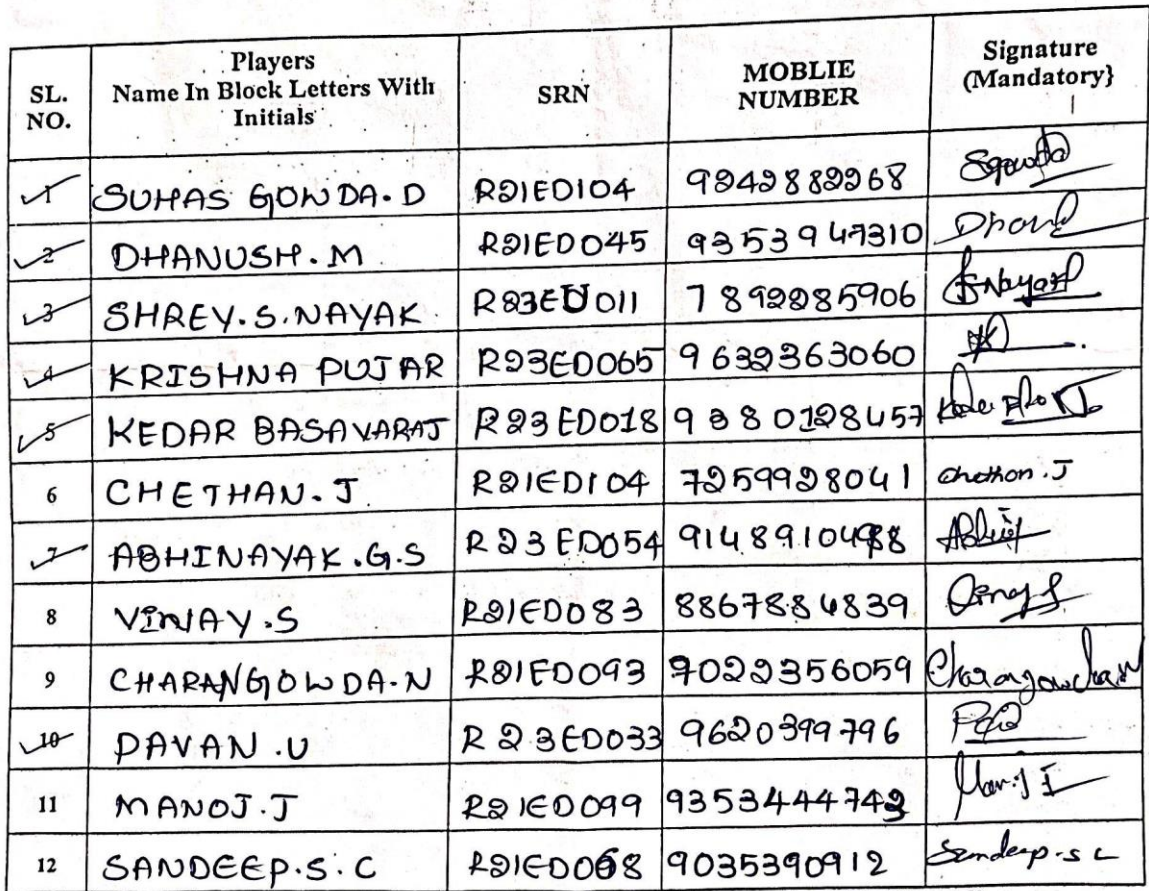 SL. NO. Players Name In Block Letters With Initials SRN MOBLIE NUMBER Signature (Mandatory}
1 SUHAS GOWDA.D R21ED104 9242882268
2 DHANUSH.M R21ED045 9353947310
3 SHREY.S.NAYAK R23EU011 7892285906 S.Nayak
4 KRISHNA PUJAR R23ED065 9632363060
5 KEDAR BASAVARAJ R23ED018 9380128457
6 CHETHAN.J R21ED104 7259928041 chethan.J
7 ABHINAYAK.G.S R23ED054 9148910488
8 VINAY.S R21ED083 8867884839
9 CHARANGOWDA.N R21ED093 7022356059 Charangowda N
10 PAVAN.U R23ED033 9620399796
11 MANOJ.J R21ED099 9353444742 Manoj J
12 SANDEEP.S.C R21ED068 9035390912 Sandeep.s c